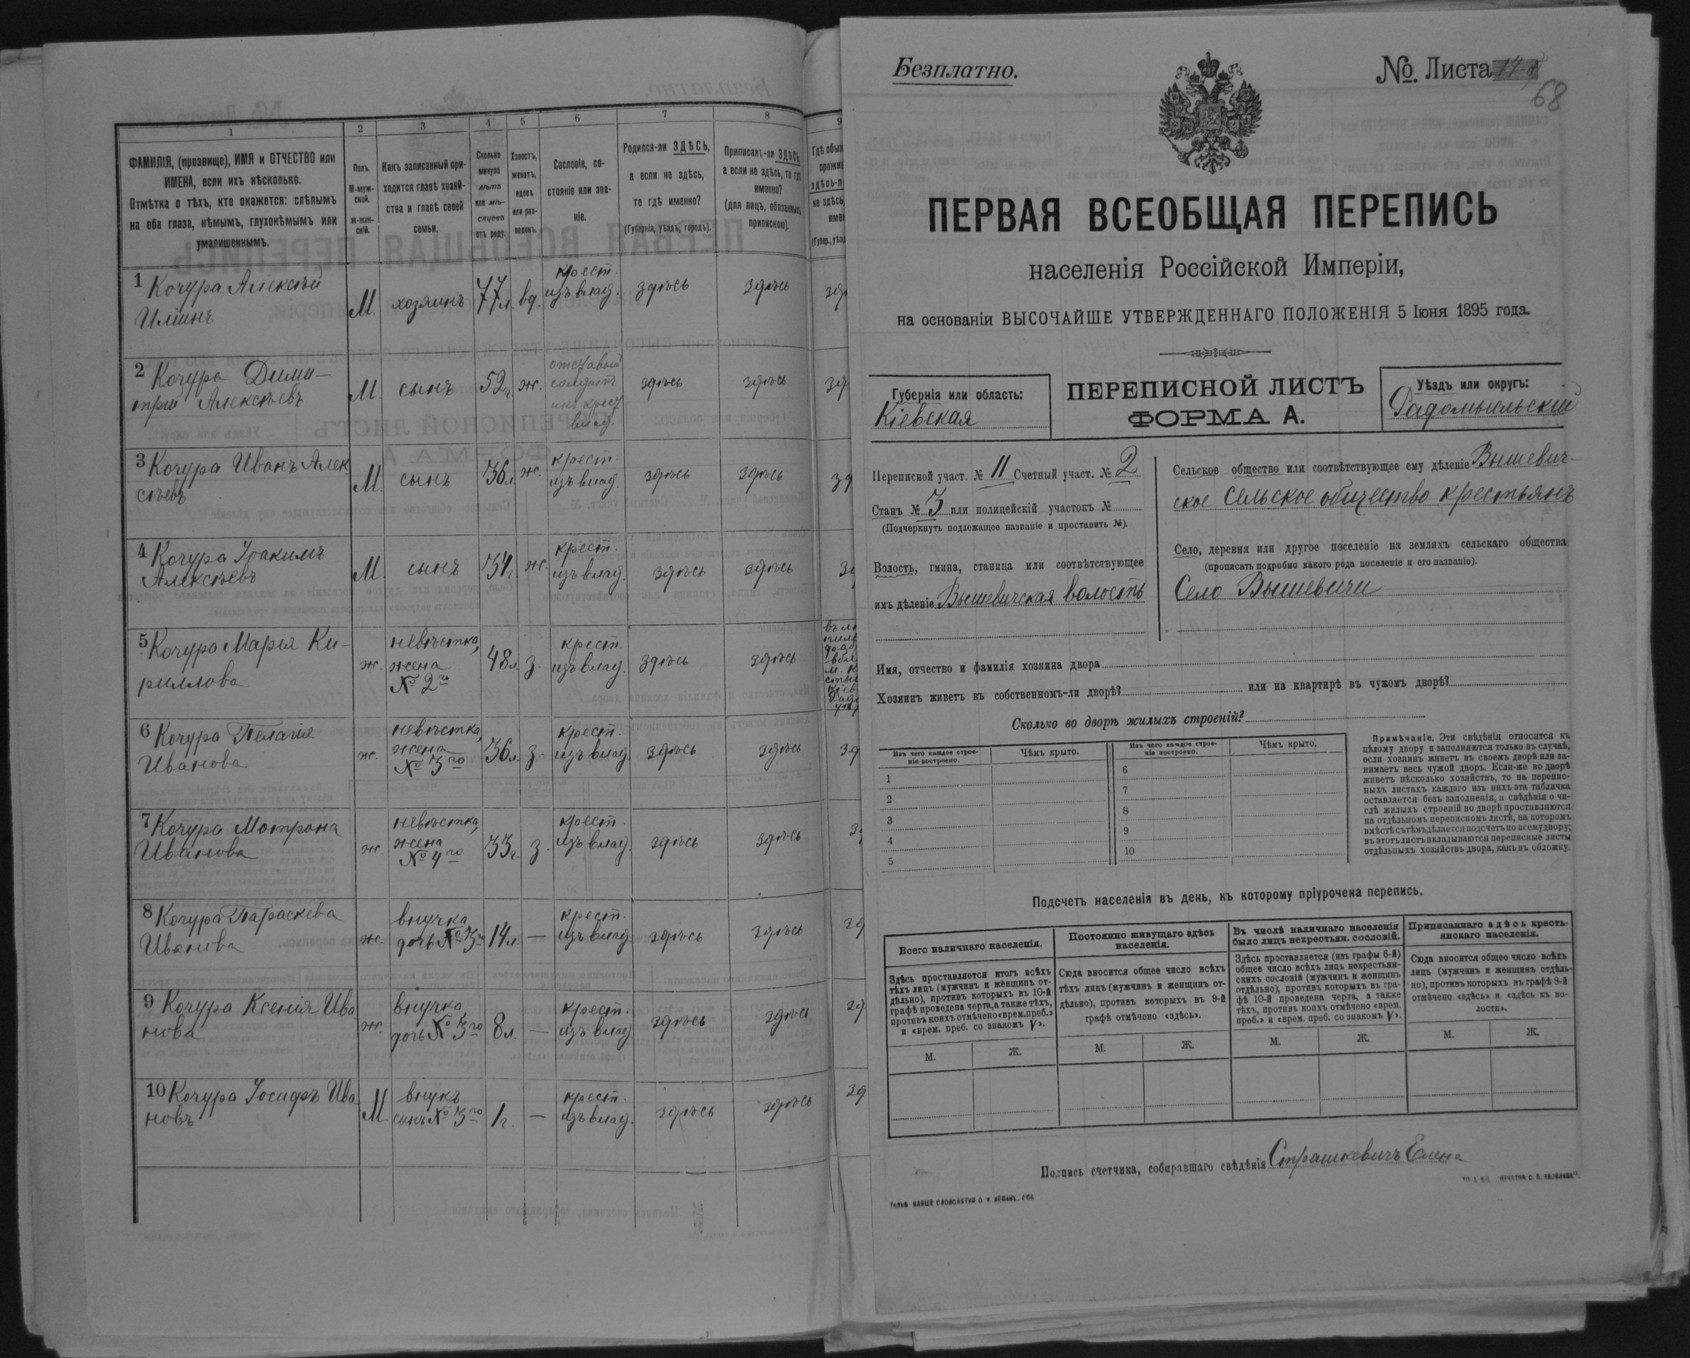 1
2
3
4
5
6
7
8
9
ФАМИЛІЯ, (прозвище), ИМЯ и ОТЧЕСТВО или
ИМЕНА, если ихъ нѣсколько.
Отмѣтка о тѣхъ, кто окажется: слѣпымъ
на оба глаза, нѣмымъ, глухонѣмымъ или
умалишеннымъ.
Полъ.
М-муж-
ской.
ж-жен-
скій.
Какъ записанный при-
ходится главѣ хозяй-
ства и главѣ своей
семьи.
Сколько
минуло
лѣтъ
или мѣ-
сяцевъ
отъ роду.
Холостъ,
женатъ,
вдовъ
или раз-
веденъ.
Сословіе, со-
стояніе или зва-
ніе.
Родился-ли ЗДѢСЬ,
а если не здѣсь,
то гдѣ именно?
(Губернія, уѣздъ, городъ).
Приписанъ-ли ЗДѢСЬ,
а если не здѣсь, то гдѣ
именно?
(для лицъ, обязанныхъ
припискою).
1 Кочура Алексѣй
Иліинъ
М.
хозяинъ
77 л.
вд.
крест.
изъ влад.
здѣсь
здѣсь
зд
2 Кочура Дими-
трій Алексѣевъ
М
сынъ
52 г.
ж.
отставный
солдатъ
изъ крест
влад
здѣсь
здѣсь
зд
3 Кочура Иванъ Алек
сѣевъ
М.
сынъ
36 л.
ж.
крест.
изъ влад.
здѣсь
здѣсь
зд
4 Кочура Іоакимъ
Алексѣевъ
М.
сынъ
34 г.
ж.
крест.
изъ влад.
здѣсь
здѣсь
зд
5 Кочура Марія Ки-
риллова
ж.
невѣстка,
жена
№ 2го
48 л.
з.
крест.
изъ влад.
здѣсь
здѣсь
6 Кочура Пелагія
Иванова
ж.
невѣстка,
жена
№ 3го
36 л.
з.
крест.
изъ влад.
здѣсь
здѣсь
зд
7 Кочура Мотрона
Иванова
ж.
невѣстка,
жена
№ 4го
33 г.
з.
крест.
изъ влад.
здѣсь
здѣсь
зд
8 Кочура Параскева
Иванова
ж.
внучка
дочь № 3го
14 л.
—
крест.
изъ влад.
здѣсь
здѣсь
зд
9 Кочура Ксенія Ива
нова
ж.
внучка
дочь № 3го
8 л.
—
крест.
изъ влад.
здѣсь
здѣсь
зд
10 Кочура Іосифъ Ива
новъ
М
внукъ
сынъ № 3го
1 г.
—
крест.
изъ влад.
здѣсь
здѣсь
зд
Безплатно.
№. Листа
68
ПЕРВАЯ ВСЕОБЩАЯ ПЕРЕПИСЬ
населенія Россійской Имперіи,
на основаніи ВЫСОЧАЙШЕ УТВЕРЖДЕННАГО ПОЛОЖЕНІЯ 5 Іюня 1895 года.
Губернія или область:
Кіевская
ПЕРЕПИСНОЙ ЛИСТЪ
ФОРМА А.
Уѣздъ или округъ:
Радомысльскій
Переписной участ. № 11 Счетный участ. № 2
Станъ № 3 или полицейскій участокъ №
(Подчеркнуть подлежащее названіе и проставить №).
Волость, гмина, станица или соотвѣтствующее
имъ дѣленіе Вышевичская волость
Сельское общество или соотвѣтствующее ему дѣленіе Вышевич-
ское сельское общество крестьянъ
Село, деревня или другое поселеніе на земляхъ сельскаго общества
(прописать подробно какого рода поселеніе и его названіе).
Село Вышевичи
Имя, отчество и фамилія хозяина двора
Хозяинъ живетъ въ собственномъ-ли дворѣ? или на квартирѣ въ чужомъ дворѣ?
Сколько во дворѣ жилыхъ строеній?
Изъ чего каждое строе-
ніе построено.
Чѣмъ крыто.
Изъ чего каждое строе-
ніе построено.
Чѣмъ крыто.
1
2
3
4
5
6
7
8
9
10
Примѣчаніе. Эти свѣдѣнія относятся къ
цѣлому двору и заполняются только въ случаѣ,
если хозяинъ живетъ въ своемъ дворѣ или за-
нимаетъ весь чужой дворъ. Если-же во дворѣ
живетъ нѣсколько хозяйствъ, то на перепис-
ныхъ листахъ каждаго изъ нихъ эта табличка
оставляется безъ заполненія, а свѣдѣнія о чи-
слѣ жилыхъ строеній во дворѣ проставляются
на отдѣльномъ переписномъ листѣ, на которомъ
вмѣстѣ съ тѣмъ дѣлается подсчетъ по всему двору;
въ этотъ листъ вкладываются переписные листы
отдѣльныхъ хозяйствъ двора, какъ въ обложку.
Подсчетъ населенія въ день, къ которому пріурочена перепись.
Всего наличнаго населенія.
Здѣсь проставляется итогъ всѣхъ
тѣхъ лицъ (мужчинъ и женщинъ от-
дѣльно), противъ которыхъ въ 10-й
графѣ проведена черта, а также тѣхъ,
противъ коихъ отмѣчено «врем. преб.»
и «врем. преб. со знакомъ V».
Постоянно живущаго здѣсь
населенія.
Сюда вносится общее число всѣхъ
тѣхъ лицъ (мужчинъ и женщинъ от-
дѣльно), противъ которыхъ въ 9-й
графѣ отмѣчено «здѣсь».
Въ числѣ наличнаго населенія
было лицъ некрестьян. сословій.
Здѣсь проставляется (изъ графы 6-й)
общее число всѣхъ лицъ некрестьян-
скихъ сословій (мужчинъ и женщинъ
отдѣльно), противъ которыхъ въ гра-
фѣ 10-й проведена черта, а также
тѣхъ, противъ коихъ отмѣчено «врем.
преб.» и «врем. преб. со знакомъ V».
Приписаннаго здѣсь кресть-
янскаго населенія.
Сюда вносится общее число всѣхъ
лицъ (мужчинъ и женщинъ отдѣль-
но), противъ которыхъ въ графѣ 8-й
отмѣчено «здѣсь» и «здѣсь въ во-
лости».
М.
Ж.
М.
Ж.
М.
Ж.
М.
Ж.
Подпись счетчика, собиравшаго свѣдѣнія Страшкевичъ Елена